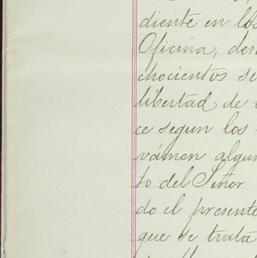 diente en los
Oficina, des
chocientos se
libertad de
ce segun los
vámen algun
to del Señor
do el presente
que se trata